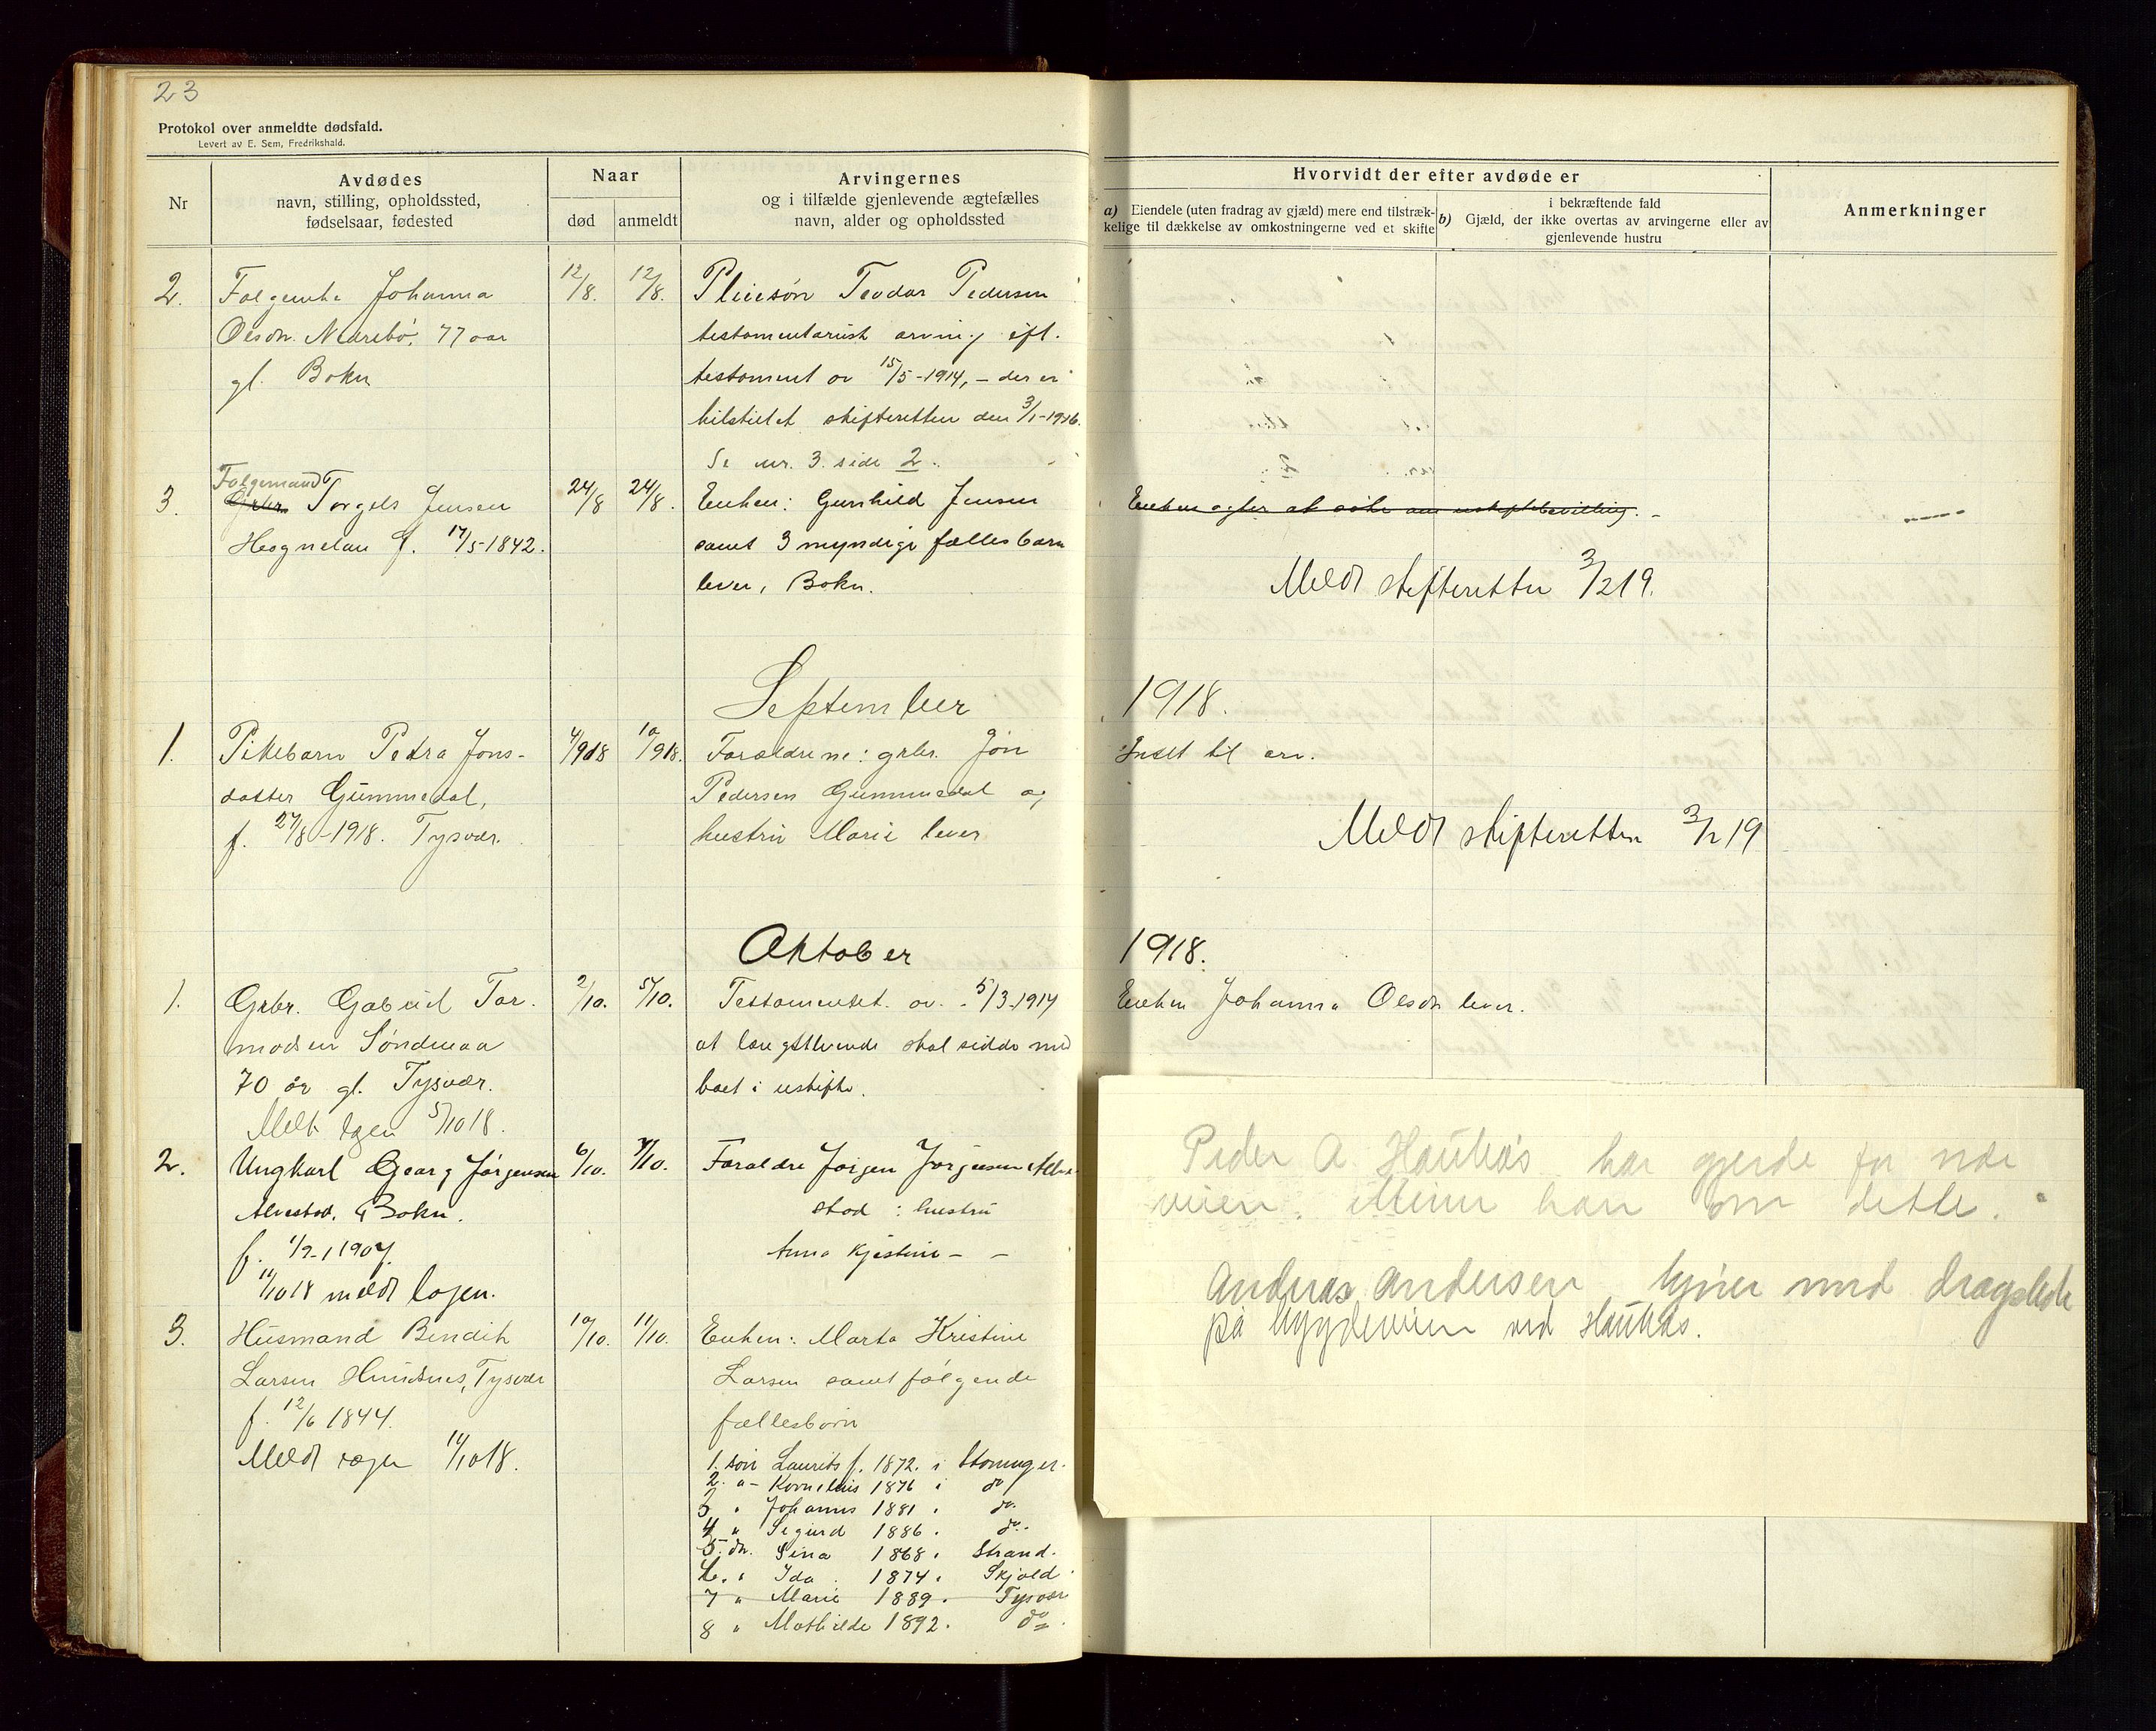 23
Protokol over anmeldte dødsfald.
Levert av E. Sem, Fredrikshald.
Nr
Avdødes
navn, stilling, opholdssted,
fødselsaar, fødested
Naar
død
anmeldt
Arvingernes
og i tilfælde gjenlevende ægtefælles
navn, alder og opholdssted
Hvorvidt der efter avdøde er
a) Eiendele (uten fradrag av gjæld) mere end tilstræk-
kelige til dækkelse av omkostningerne ved et skifte
i bekræftende fald
b) Gjæld, der ikke overtas av arvingerne eller av
gjenlevende hustru
Anmerkninger
2. Johanna 12/8. 12/8. Pleiesøn Teodor Pedersen
Olsdr. Nedrebø, 77 aar testamentarisk arving ifl.
gl. Bokn testament av 15/5-1914, – der er
tilstillet skifteretten den 3/1-1916.
Se nr. 3. side 2.
Følgemand
3. Grbr. Torgels Jensen 24/8 24/8. Enken: Gunhild Jensen Enken agter at søke om uskiftebevilling. –
Hognelan f. 17/5-1842. samt 3 myndige fællesbarn
lever, Bokn. Meldt skifteretten 3/2 19.
September 1918.
1. Pikebarn Petra Jons- 4/9 18 10/9 18. Forældrene: grbr. Jon Intet til arv.
datter Gummedal, Pedersen Gummedal og
f. 27/8-1918. Tysvær. hustru Marie lever Meldt skifteretten 3/2 19
Oktober 1918.
1. Grbr. Gabriel Tor- 2/10. 5/10. Testamentet av 5/3-1914 Enken Johanna Olsdr lever.
modsen Søndenaa at længstlevende skal sidde med
70 år gl. Tysvær. boet i uskifte.
Meldt 5/10 18.
2. Ungkarl Georg Jørgensen 6/10. 7/10. Forældre Jørgen Jørgensen Alve-
Alvestad, Bokn. stad : hustru
f. 1/9-1907. Anna Kjestine – –
11/10 18 meldt
3. Husmand Bendik 10/10. 11/10. Enken: Marta Kristine
Larsen Hindnes, Tysvær Larsen samt følgende
f. 12/6 1844. fællesbørn
Meldt 11/10 18. 1. søn Laurits f. 1872. i Stavanger.
2. " – Kornelius 1876 i do
3 " Johannes 1881 . do.
4 " Sigurd 1886 . do.
5. dr. Sina 1868 . Strand.
6. " Ida 1874 . Skjold
7 " Marie 1889. Tysvær
8 " Mathilde 1892. do.
Peder A Haukås har gjerde for nær
veien. Minn han om dette.
Andreas Andersen kjører med dragslede
på bygdeveien ved Haukås.